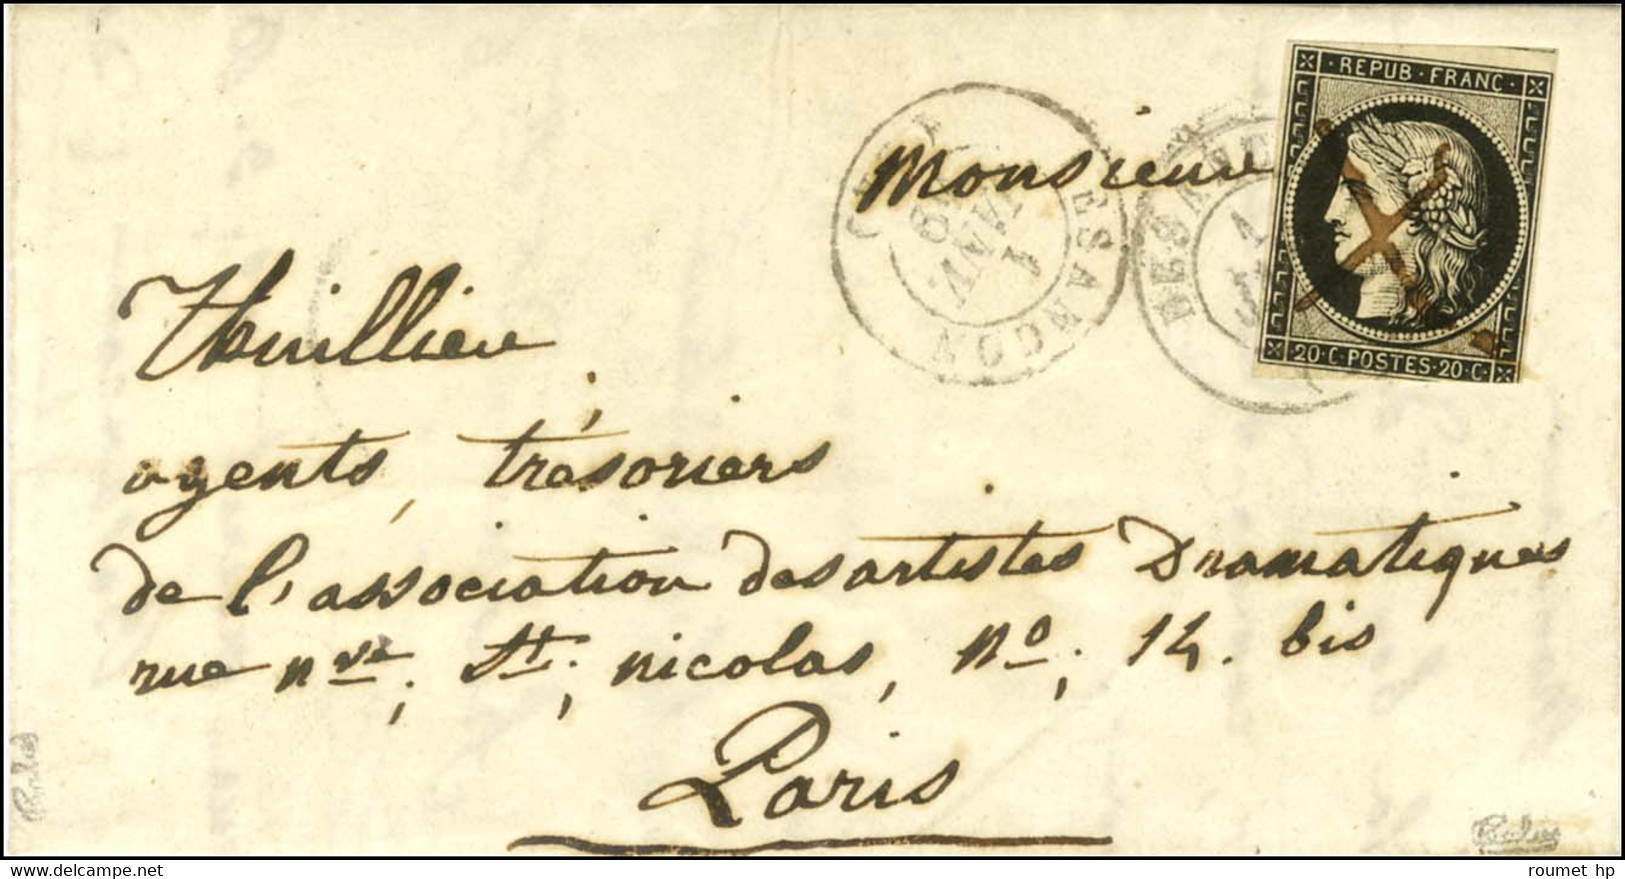 REPUB·FRANC·
20·C·POSTES·20·C·
BESANÇON
1
JANV.
49
Monsieur
Thuillier
agents, trésoriers
de l'association des artistes Dramatiques
rue nve; St; nicolas, No; 14. bis
Paris
www.delcampe.net
roumet hp